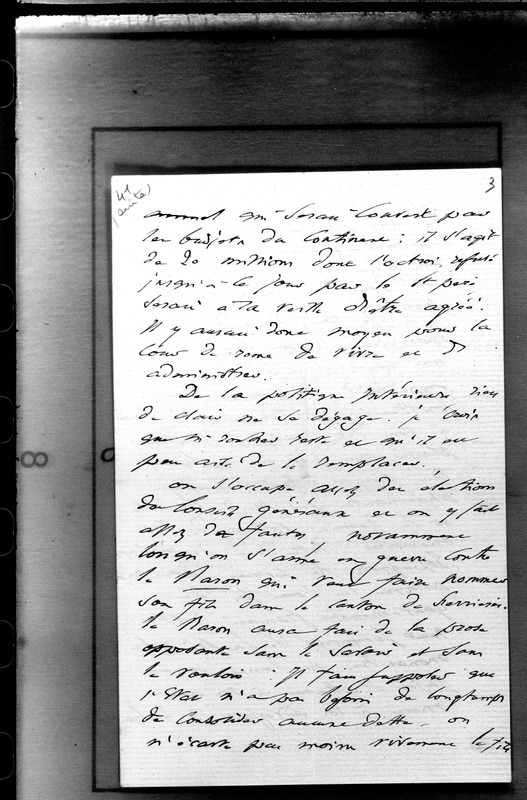 3
annuel qui serait couvert par
les budjets du Continent : il s'agit
de 20 millions dont l'octroi, refusé
jusqu'à ce jour par le St père
serait à la veille d'être agréé.
Il y aurait donc moyen pour la
Cour de rome de vivre et d'
administrer.
De la politique intérieure rien
de clair ne se dégage. je crois
que Mr rouher reste et qu'il est
peu aisé de le remplacer.
on s'occupe assez des élections
des Conseils généraux et on y fait
assez de fautes, notamment
lorsqu'on s'arme en guerre contre
le Baron qui veut faire nommer
son fils dans le canton de
le Baron aura fait de la prose
opposante sans le savoir et sans
le vouloir. Il faut supposer que
l'Etat n'a pas besoin de longtemps
de Consolider aucune dette. on
n'écarte pas moins vivement le fils